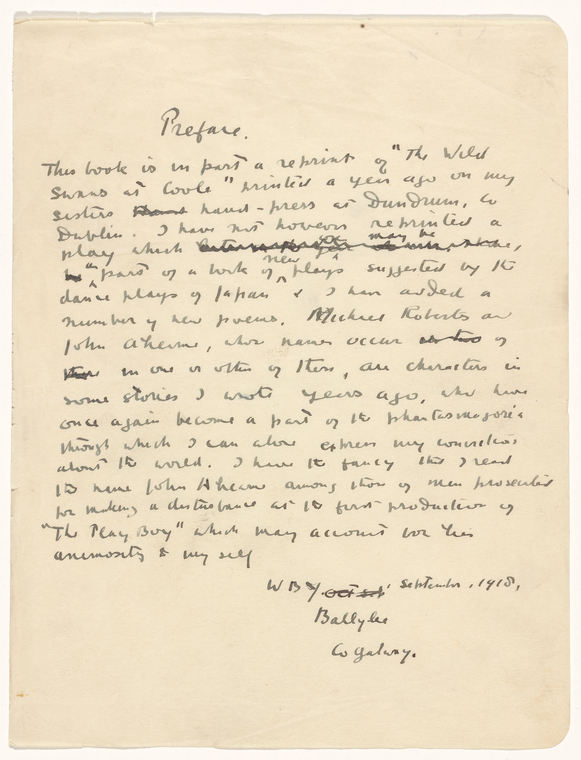 Preface.
This book is in part a reprint of "The Wild
Swans at Coole" printed a year ago on my
sisters hand-press at Dundrum, Co
Dublin. I have not however reprinted a
play which may be
"a part of a book of new plays suggested by the
dance plays of Japan" & I have added a
number of new poems. Michael Robartes and
John Aherne, whose names occur of
in one or other of these, are characters in
some stories I wrote years ago, who have
once again become a part of the phantasmagoria
through which I can alone express my convictions
about the world. I have the fancy that I read
the name John Aherne among those of men prosecuted
for making a disturbance at the first production of
"The Play Boy" which may account for his
animosity to my self
WBY. September, 1918,
Ballylee
Co Galway.